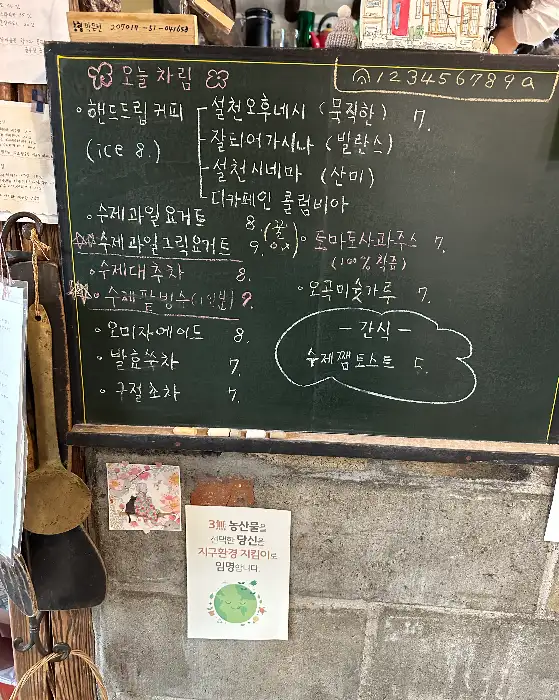 농협 박근현 207014-51-041653
오늘 차림
1234567890a
핸드드립 커피
(ice 8.)
설천오후네시 (묵직한) 7.
잘되어가시나 (발란스)
설천시네마 (산미)
디카페인 콜럼비아
수제과일요거트 8.
수제과일그릭요거트 9.
(꿀 o, x)
수제대추차 8.
수제팥빙수(1인분) 9.
오미자에이드 8.
발효쑥차 7.
구절초차 7.
토마토사과주스 7.
(100% 착즙)
오곡미숫가루 7.
- 간식 -
수제쨈토스트 5.
3無 농산물을
선택한 당신은
지구환경 지킴이로
임명합니다.